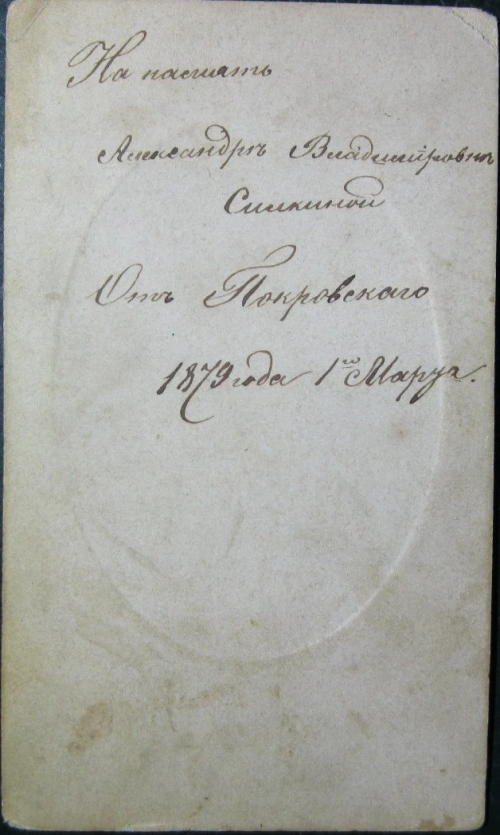 На память
Александръ Владимiровнъ
Силкиной
Отъ Покровскаго
1879 года 1го Марта.